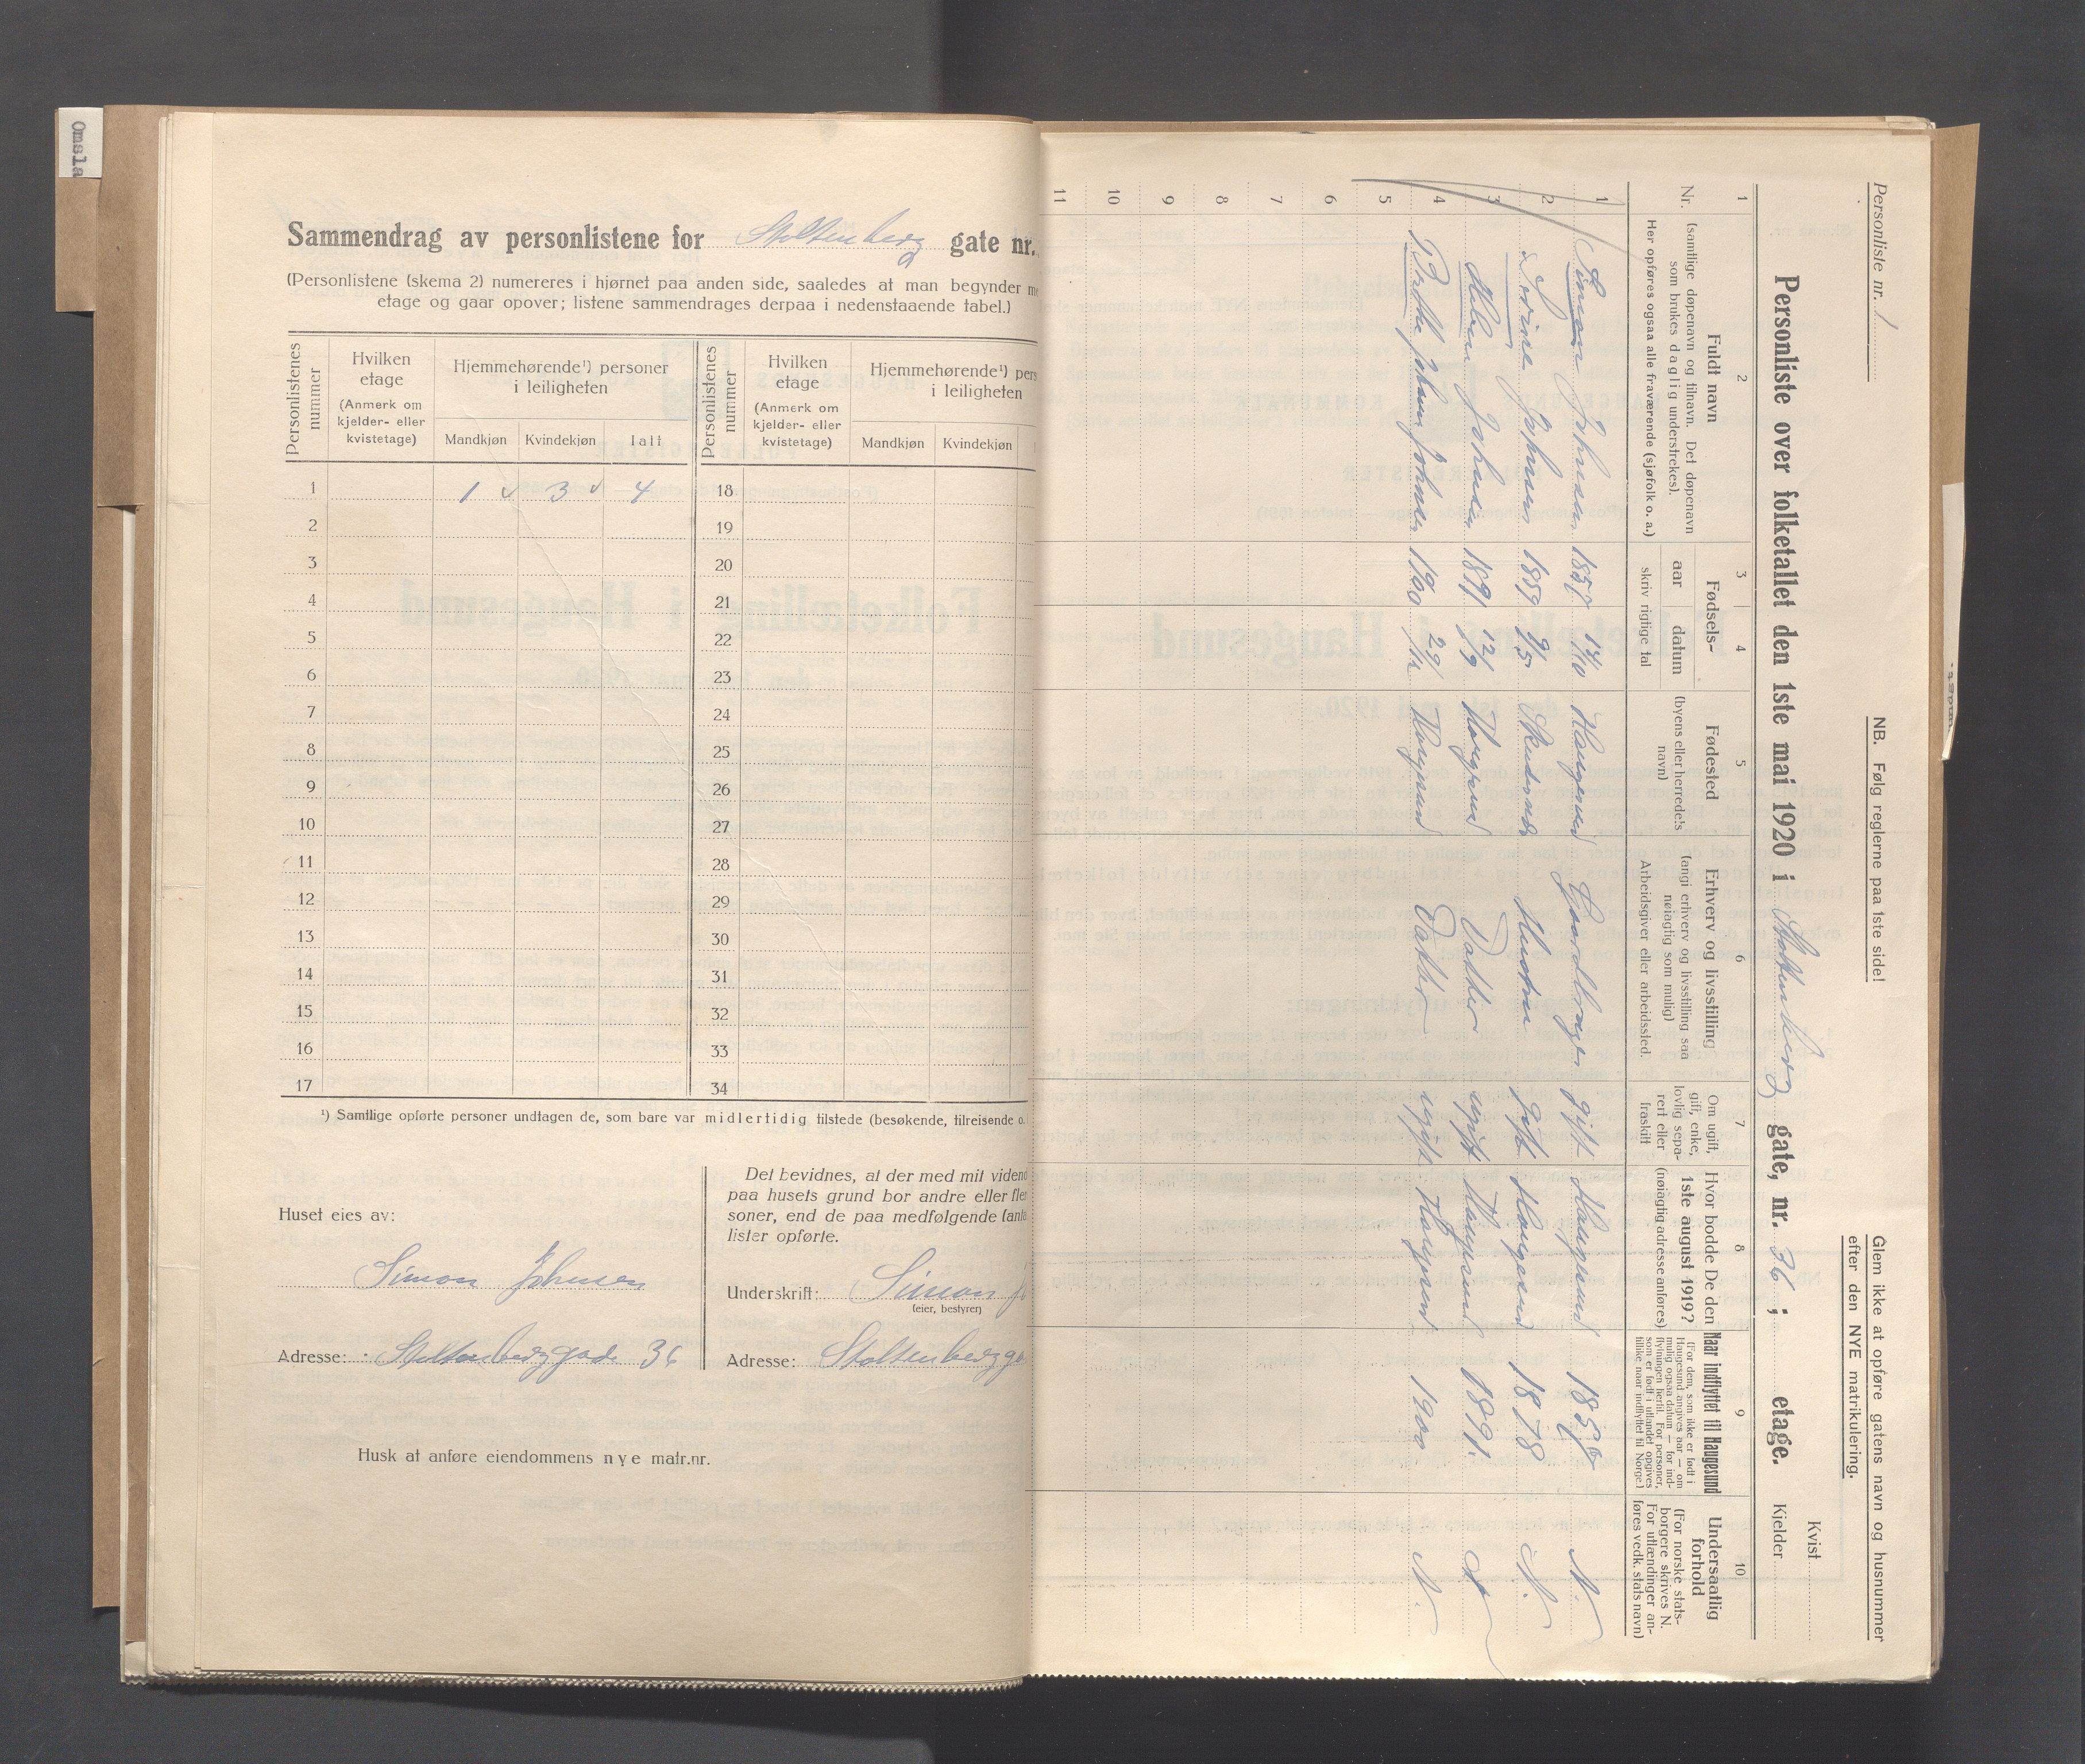 Omsla
Sammendrag av personlistene for Stoltenberg gate nr.
(Personlistene (skema 2) numereres i hjørnet paa anden side, saaledes at man begynder
etage og gaar opover; listene sammendrages derpaa i nedenstaaende tabel.)
Personlistenes nummer
Hvilken etage (Anmerk om kjelder- eller kvistetage)
Hjemmehørende¹) personer i leiligheten
Mandkjøn Kvindekjøn Ialt
Personlistenes nummer
Hvilken etage (Anmerk om kjelder- eller kvistetage)
Hjemmehørende¹) pers
i leiligheten
Mandkjøn Kvindekjøn
1 1 3 4 18
2 19
3 20
4 21
5 22
6 23
7 24
8 25
9 26
10 27
11 28
12 29
13 30
14 31
15 32
16 33
17 34
¹) Samtlige opførte personer undtagen de, som bare var midlertidig tilstede (besøkende, tilreisende o.
Huset eies av:
Simon Johnsen
Adresse: Stoltenberggade 36
Det bevidnes, at der med mit vidend
paa husets grund bor andre eller fler
soner, end de paa medfølgende (anta
lister opførte.
Underskrift: Simon J
(eier, bestyrer)
Adresse: Stoltenbergga
Husk at anføre eiendommens nye matr.nr.
Personliste nr. 1
NB. Følg reglerne paa 1ste side!
Glem ikke at opføre gatens navn og husnummer
efter den NYE matrikulering.
Personliste over folketallet den 1ste mai 1920 i Stoltenberg gate, nr. 36; etage.
Kvist
Kjelder
1 2 3 4 5 6 7 8 9 10
Nr.
Fuldt navn
(samtlige døpenavn og tilnavn. Det døpenavn
som brukes daglig understrekes).
Her opføres ogsaa alle fraværende (sjøfolk o. a.)
Fødsels-
aar datum
skriv rigtige tal
Fødested
(byens eller herredets
navn)
Erhverv og livsstilling
(angi erhverv og livsstilling saa
nøiagtig som mulig)
Arbeidsgiver eller arbeidssted.
Om ugift,
gift, enke,
lovlig sepa-
rert eller
fraskilt
Hvor bodde De den
1ste august 1919?
(nøiagtig adresse anføres)
Naar indflyttet til Haugesund
(For dem, som ikke er født i
Haugesund angives aar — om
mulig ogsaa datum — for ind-
flytningen hertil. For personer,
som er født i utlandet opgives
tillike naar indflyttet til Norge.)
Undersaatlig
forhold
(For norske stats-
borgere skrives N.
For utlændinger an-
føres vedk. stats navn)
1 Simon Johnsen Haugesund Gaardbruger gift Haugesund N.
2 Serine Johnsen 9/5 Hustru gift Haugesund 1878 N.
3 Johnsen 1891 12/9 Haugesund Datter ugift Haugesund 1891.
4 Berthe Johnsen 1900 Haugesund Datter ugift Haugesund 1900 N.
5
6
7
8
9
10
11